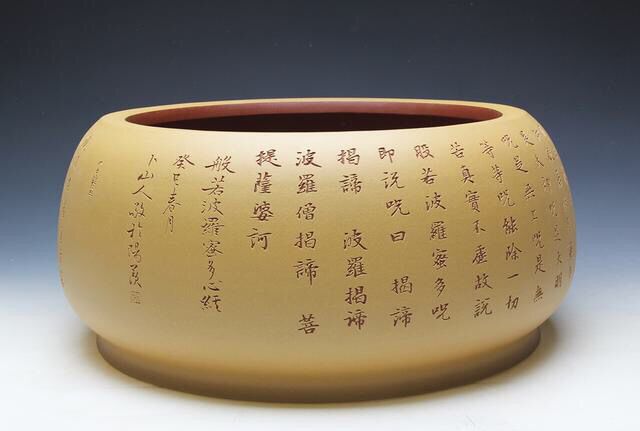 是大神咒是大明
咒是無上咒是無
等等咒能除一切
苦真實不虛故說
般若波羅蜜多咒
即説咒曰 揭諦
揭諦 波羅揭諦
波羅僧揭諦 菩
提薩婆訶
般若波羅蜜多心經
癸巳春月
卜山人敬於陽羨